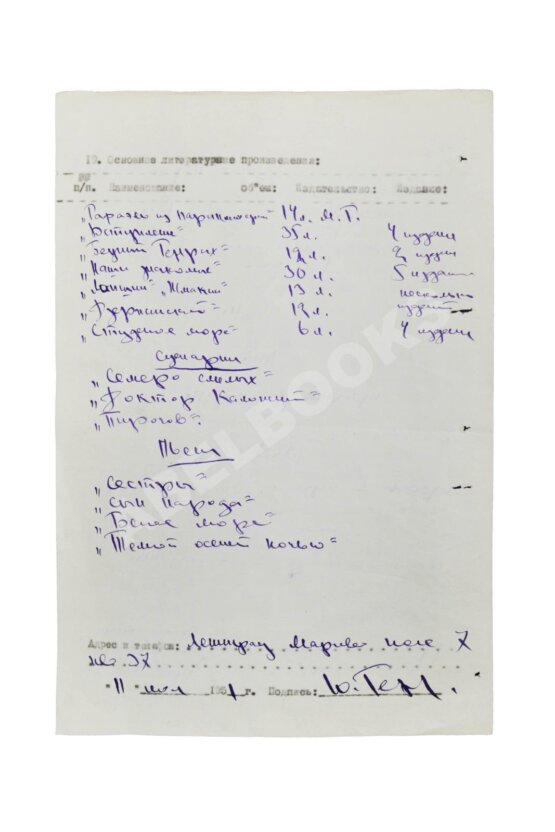 19. Основные литературные произведения:
№№
п/п. Наименование: об"ем: Издательство: Издание:
„Рафаэль из парикмахерской" 14 л. М. Г.
„Вступление" 35 л. 4 издания
„Бедный Генрих" 12 л. 2 издан
„Наши знакомые" 30 л. 5 издания
„Лапшин" „Жмакин" 13 л. несколько
„Дзержинский" 12 л. изданий
„Студеное море" 6 л. 4 издания
Сценарии
„Семеро смелых"
„Доктор Калюжный"
„Пирогов".
Пьесы
„Сестры"
„Сын народа"
„Белое море"
„Темной осенней ночью"
Адрес и телефон: Ленинград Марсово поле 7
кв. 37
"11" 195 г. Подпись: Ю. Герм.
ARELBOOKS